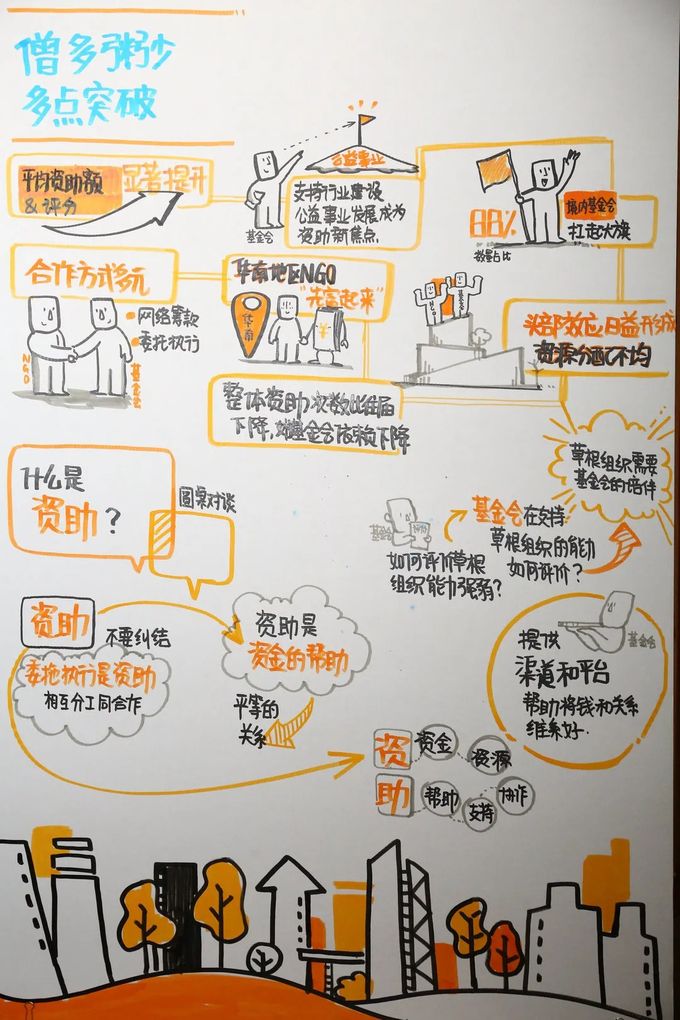 僧多粥少
多点突破
平均资助额
&评分
显著提升
公益事业
基金会
支持行业建设
公益事业发展成为
资助新焦点.
88%
数量占比
境内基金会
扛起大旗
合作方式多元
网络筹款
委托执行
NGO
基金会
华南地区NGO
"先富起来"
华南
¥
头部效应日益形成
资源分配不均
整体资助次数比往届
下降,对基金会依赖下降
草根组织需要
基金会的陪伴
什么是
资助?
圆桌对谈
基金会
如何评价草根
组织能力强弱?
基金会在支持
草根组织的能力
如何评价?
资助
不要纠结
委托执行是资助
相互分工同合作
资助是
资金的帮助
平等的
关系
基金会
提供
渠道和平台
帮助将钱和关系
维系好.
资 资金 资源
助 帮助 支持 协作